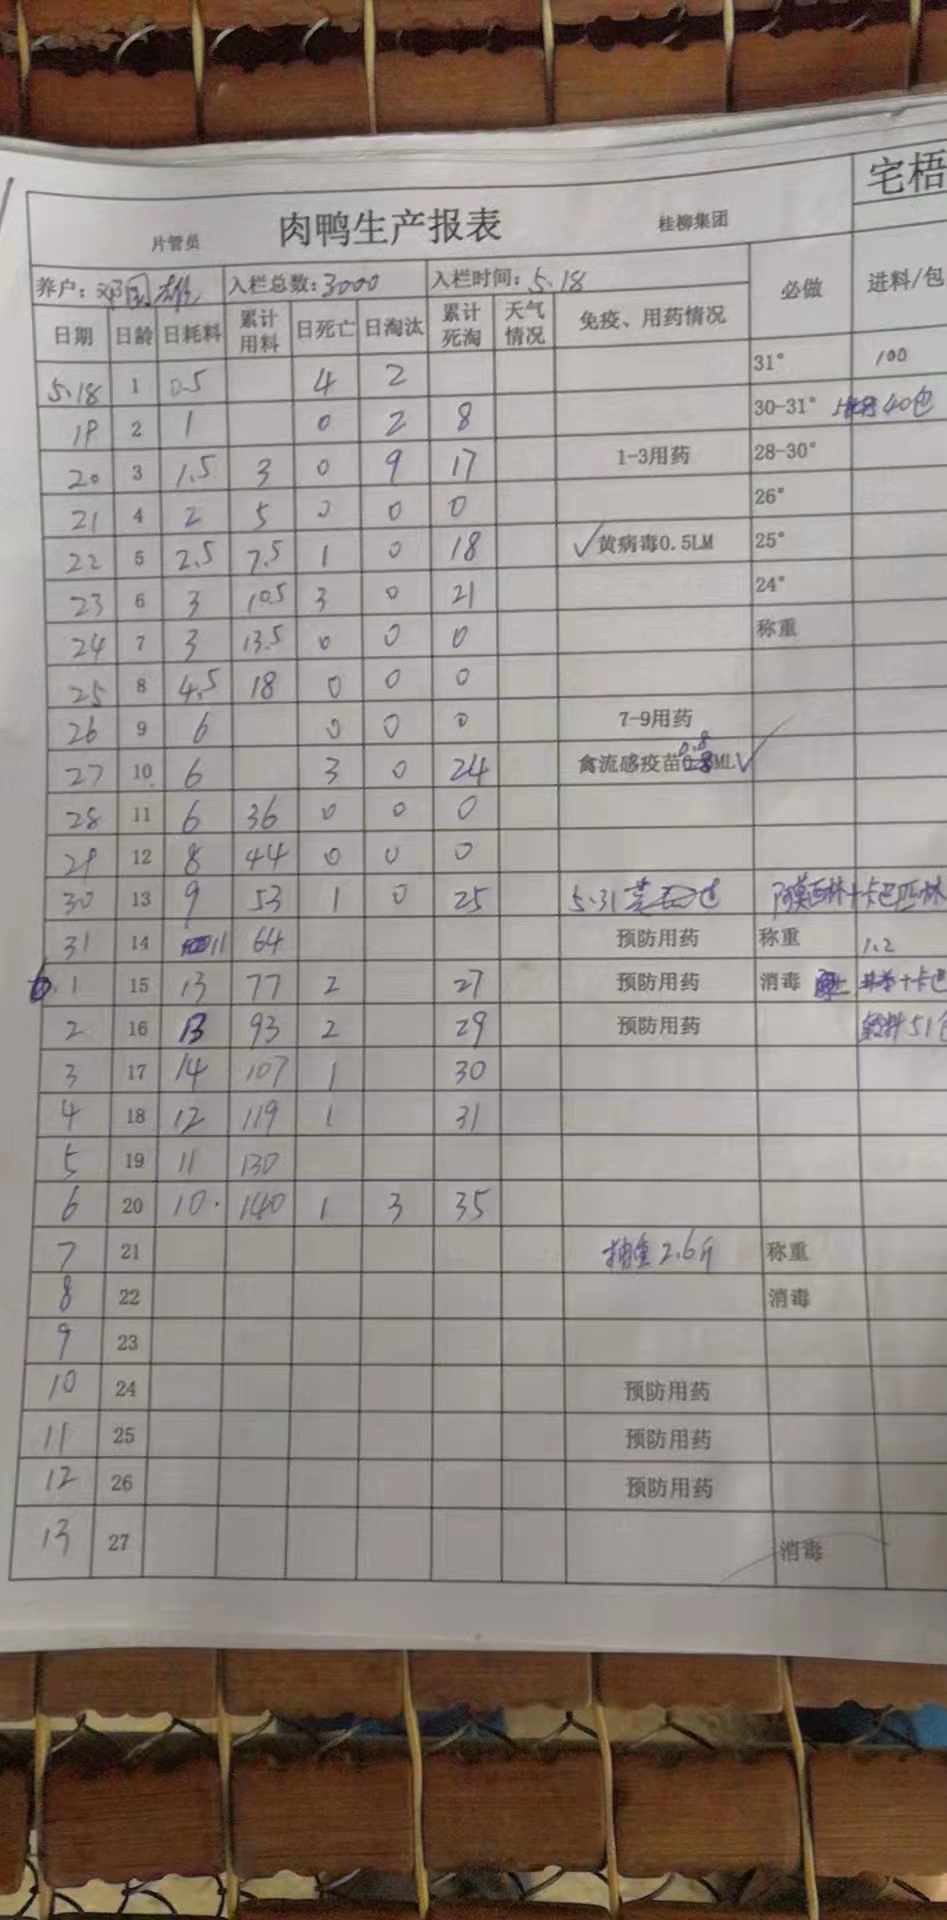 宅梧
片管员 肉鸭生产报表 桂柳集团
养户：邓国雄 入栏总数：3000 入栏时间：5.18 必做 进料/包
日期 日龄 日耗料 累计用料 日死亡 日淘汰 累计死淘 天气情况 免疫、用药情况
5.18 1 0.5 4 2 31° 100
19 2 1 0 2 8 30-31° 40包
20 3 1.5 3 0 9 17 1-3用药 28-30°
21 4 2 5 0 0 0 26°
22 5 2.5 7.5 1 0 18 ✓黄病毒0.5LM 25°
23 6 3 10.5 3 0 21 24°
24 7 3 13.5 0 0 0 称重
25 8 4.5 18 0 0 0
26 9 6 0 0 0 7-9用药
27 10 6 3 0 24 禽流感疫苗0.8ML✓
28 11 6 36 0 0 0
29 12 8 44 0 0 0
30 13 9 53 1 0 25 5.31 阿莫西林+卡巴匹林
31 14 11 64 预防用药 称重 1.2
6.1 15 13 77 2 27 预防用药 消毒 +卡巴
2 16 13 93 2 29 预防用药 51
3 17 14 107 1 30
4 18 12 119 1 31
5 19 11 130
6 20 10. 140 1 3 35
7 21 抽重2.6斤 称重
8 22 消毒
9 23
10 24 预防用药
11 25 预防用药
12 26 预防用药
13 27 消毒